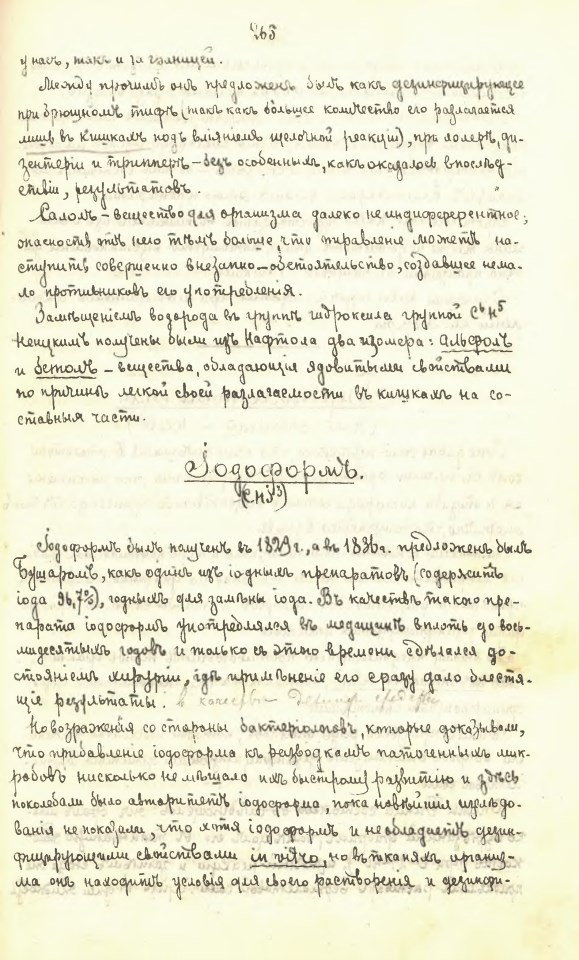 265
у насъ, такъ и за границей.
Между прочимъ онъ предложенъ былъ какъ дезинфицирующее
при брюшномъ тифѣ (такъ какъ большее количество его разлагается
лишь въ кишкахъ подъ вліяніемъ щелочной реакціи), при холерѣ, ди-
зентеріи и трипперѣ – безъ особенныхъ, какъ оказалось впослѣд-
ствіи, результатовъ.
Салолъ – вещество для организма далеко не индифферентное;
опасность отъ него тѣмъ больше, что отравленіе можетъ на-
ступить совершенно внезапно – обстоятельство, создавшее нема-
ло противниковъ его употребленія.
Замѣщеніемъ водорода въ группѣ гидроксила группой C⁶H⁵
Ненцкимъ получены были изъ Нафтола два изомера: Альфолъ
и бетолъ – вещества, обладающія ядовитыми свойствами
по причинѣ легкой своей разлагаемости въ кишкахъ на со-
ставныя части.
Іодоформъ.
(CHJ³)
Іодоформъ былъ полученъ въ 1829 г., а въ 1836 г. предложенъ былъ
Бушаромъ, какъ одинъ изъ іодныхъ препаратовъ (содержитъ
іода 96,7%), годнымъ для замѣны іода. Въ качествѣ такого пре-
парата іодоформъ употреблялся въ медицинѣ вплоть до вось-
мидесятыхъ годовъ и только съ этого времени сдѣлался до-
стояніемъ хирургіи, гдѣ примѣненіе его сразу дало блестя-
щіе результаты. въ качествѣ дезинф. средства
Но возраженія со стороны бактеріологовъ, которые доказывали,
что прибавленіе іодоформа къ разводкамъ патогенныхъ мик-
робовъ нисколько не мѣшало ихъ быстрому развитію и здѣсь
поколебали было авторитетъ іодоформа, пока новѣйшія изслѣдо-
ванія не показали, что хотя іодоформъ и не обладаетъ дезин-
фицирующими свойствами in vitro, но въ тканяхъ организ-
ма онъ находитъ условія для своего растворенія и дезинфи-